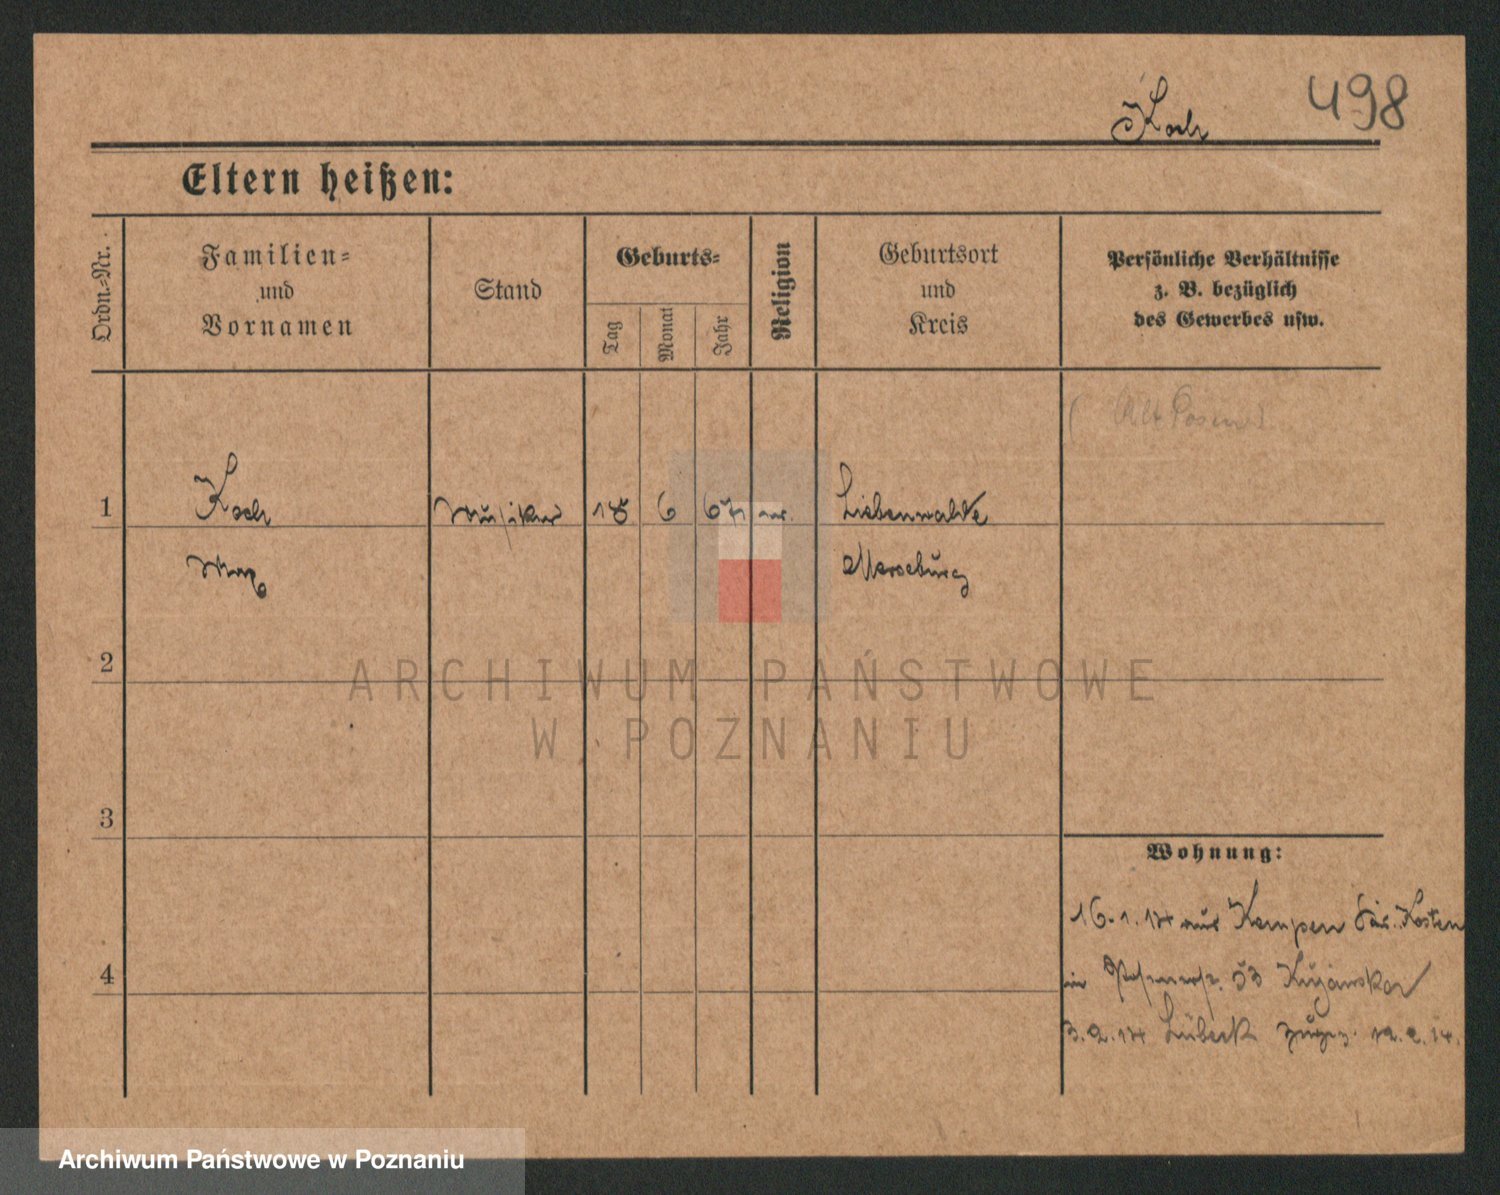 498
Koch
Eltern heißen:
Ordn.-Nr.
Familien-
und
Vornamen
Stand
Geburts-
Tag
Monat
Jahr
Religion
Geburtsort
und
Kreis
Persönliche Verhältnisse
z. B. bezüglich
des Gewerbes usw.
Alt Posen
1
Koch
Musiker
18
6
67
ev.
Liebenwalde
Max
Merseburg
2
ARCHIWUM PAŃSTWOWE
W POZNANIU
3
Wohnung:
16.1.14 aus Kempen Kosten
4
in 53 Kujawska
3.2.14 Lübeck 12.2.14.
Archiwum Państwowe w Poznaniu